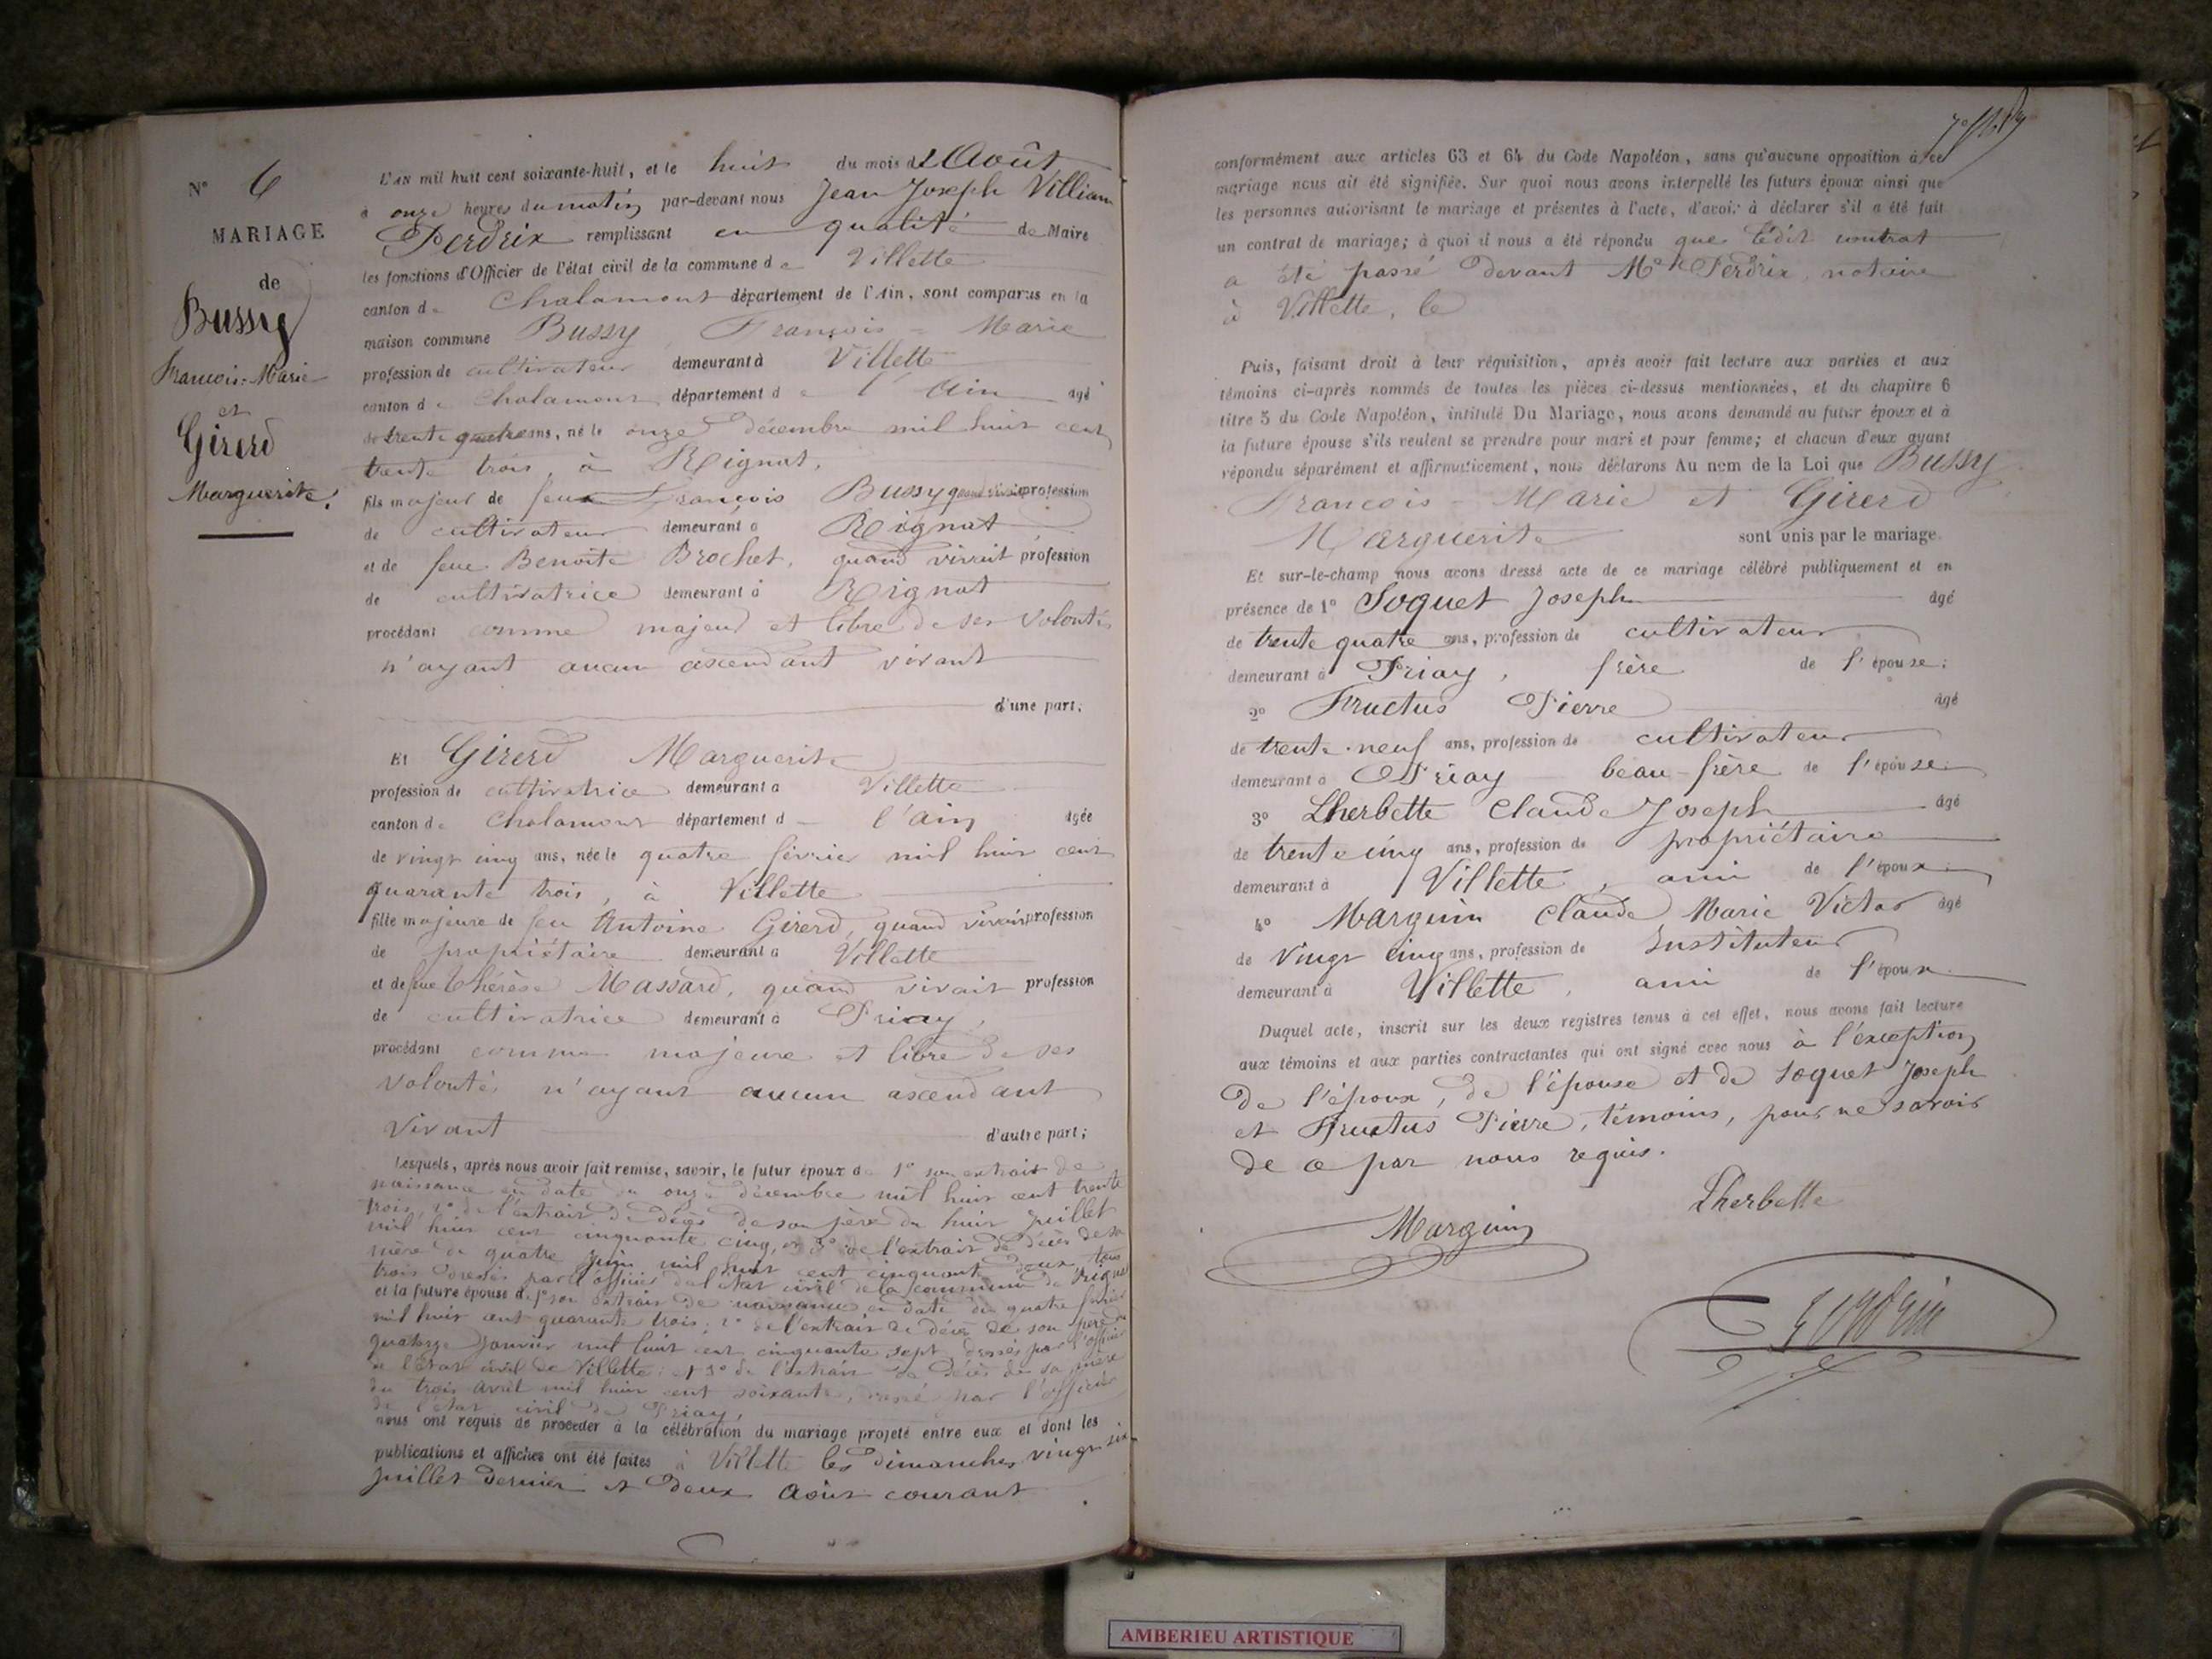 N° 6
MARIAGE
de
Bussy
François-Marie
et
Girerd
Marguerite.
L'AN mil huit cent soixante-huit, et le huit du mois d'Août
à onze heures du matin par-devant nous Jean Joseph Villiam
Perdrix remplissant en qualité de Maire
les fonctions d'Officier de l'état civil de la commune de Villette
canton de Chalamont département de l'Ain, sont comparus en la
maison commune Bussy, François-Marie
profession de cultivateur demeurant à Villette
canton de Chalamont département de l'Ain âgé
de trente quatre ans, né le onze décembre mil huit cent
trente trois, à Rignat,
fils majeur de feu François Bussy quand vivait profession
de cultivateur demeurant à Rignat
et de feue Benoite Brochet, quand vivait profession
de cultivatrice demeurant à Rignat
procédant comme majeur et libre de ses volontés
n'ayant aucun ascendant vivant
d'une part;
Et Girerd Marguerite
profession de cultivatrice demeurant à Villette
canton de Chalamont département de l'Ain âgée
de vingt cinq ans, née le quatre février mil huit cent
quarante trois, à Villette
fille majeure de feu Antoine Girerd, quand vivait profession
de propriétaire demeurant à Villette
et de feue Thérèse Massard, quand vivait profession
de cultivatrice demeurant à Priay,
procédant comme majeure et libre de ses
volontés n'ayant aucun ascendant
vivant d'autre part;
Lesquels, après nous avoir fait remise, savoir, le futur époux de 1° son extrait de
naissance en date du onze décembre mil huit cent trente
trois, 2° de l'extrait de décès de son père du huit juillet
mil huit cent cinquante cinq, et 3° de l'extrait de décès de sa
mère du quatre juin mil huit cent cinquante deux, tous
trois dressés par l'officier de l'état civil de la commune de Rignat
et la future épouse de 1° son extrait de naissance en date du quatre février
mil huit cent quarante trois; 2° de l'extrait de décès de son père du
quatorze janvier mil huit cent cinquante sept, dressés par l'officier
de l'État civil de Villette; et 3° de l'extrait de décès de sa mère
du trois avril mil huit cent soixante, dressé par l'officier
de l'état civil de Priay,
nous ont requis de procéder à la célébration du mariage projeté entre eux et dont les
publications et affiches ont été faites à Villette les dimanches vingt six
juillet dernier et deux août courant
conformément aux articles 63 et 64 du Code Napoléon, sans qu'aucune opposition à ce
mariage nous ait été signifiée. Sur quoi nous avons interpellé les futurs époux ainsi que
les personnes autorisant le mariage et présentes à l'acte, d'avoir à déclarer s'il a été fait
un contrat de mariage; à quoi il nous a été répondu que ledit contrat
a été passé devant Me Perdrix, notaire
à Villette, le
Puis, faisant droit à leur réquisition, après avoir fait lecture aux parties et aux
témoins ci-après nommés de toutes les pièces ci-dessus mentionnées, et du chapitre 6
titre 5 du Code Napoléon, intitulé Du Mariage, nous avons demandé au futur époux et à
la future épouse s'ils veulent se prendre pour mari et pour femme; et chacun d'eux ayant
répondu séparément et affirmativement, nous déclarons Au nom de la Loi que Bussy
François-Marie et Girerd
Marguerite sont unis par le mariage.
Et sur-le-champ nous avons dressé acte de ce mariage célébré publiquement et en
présence de 1° Soquet Joseph âgé
de trente quatre ans, profession de cultivateur
demeurant à Priay, frère de l'épouse;
2° Fructus Pierre âgé
de trente-neuf ans, profession de cultivateur
demeurant à Priay beau-frère de l'épouse;
3° Lherbette Claude Joseph âgé
de trente cinq ans, profession de propriétaire
demeurant à Villette, ami de l'époux;
4° Marguin Claude Marie Victor âgé
de vingt cinq ans, profession de Instituteur
demeurant à Villette, ami de l'époux.
Duquel acte, inscrit sur les deux registres tenus à cet effet, nous avons fait lecture
aux témoins et aux parties contractantes qui ont signé avec nous à l'exception
de l'époux, de l'épouse et de Soquet Joseph
et Fructus Pierre, témoins, pour ne savoir
de ce par nous requis.
Lherbette
Marguin
Perdrix
AMBERIEU ARTISTIQUE